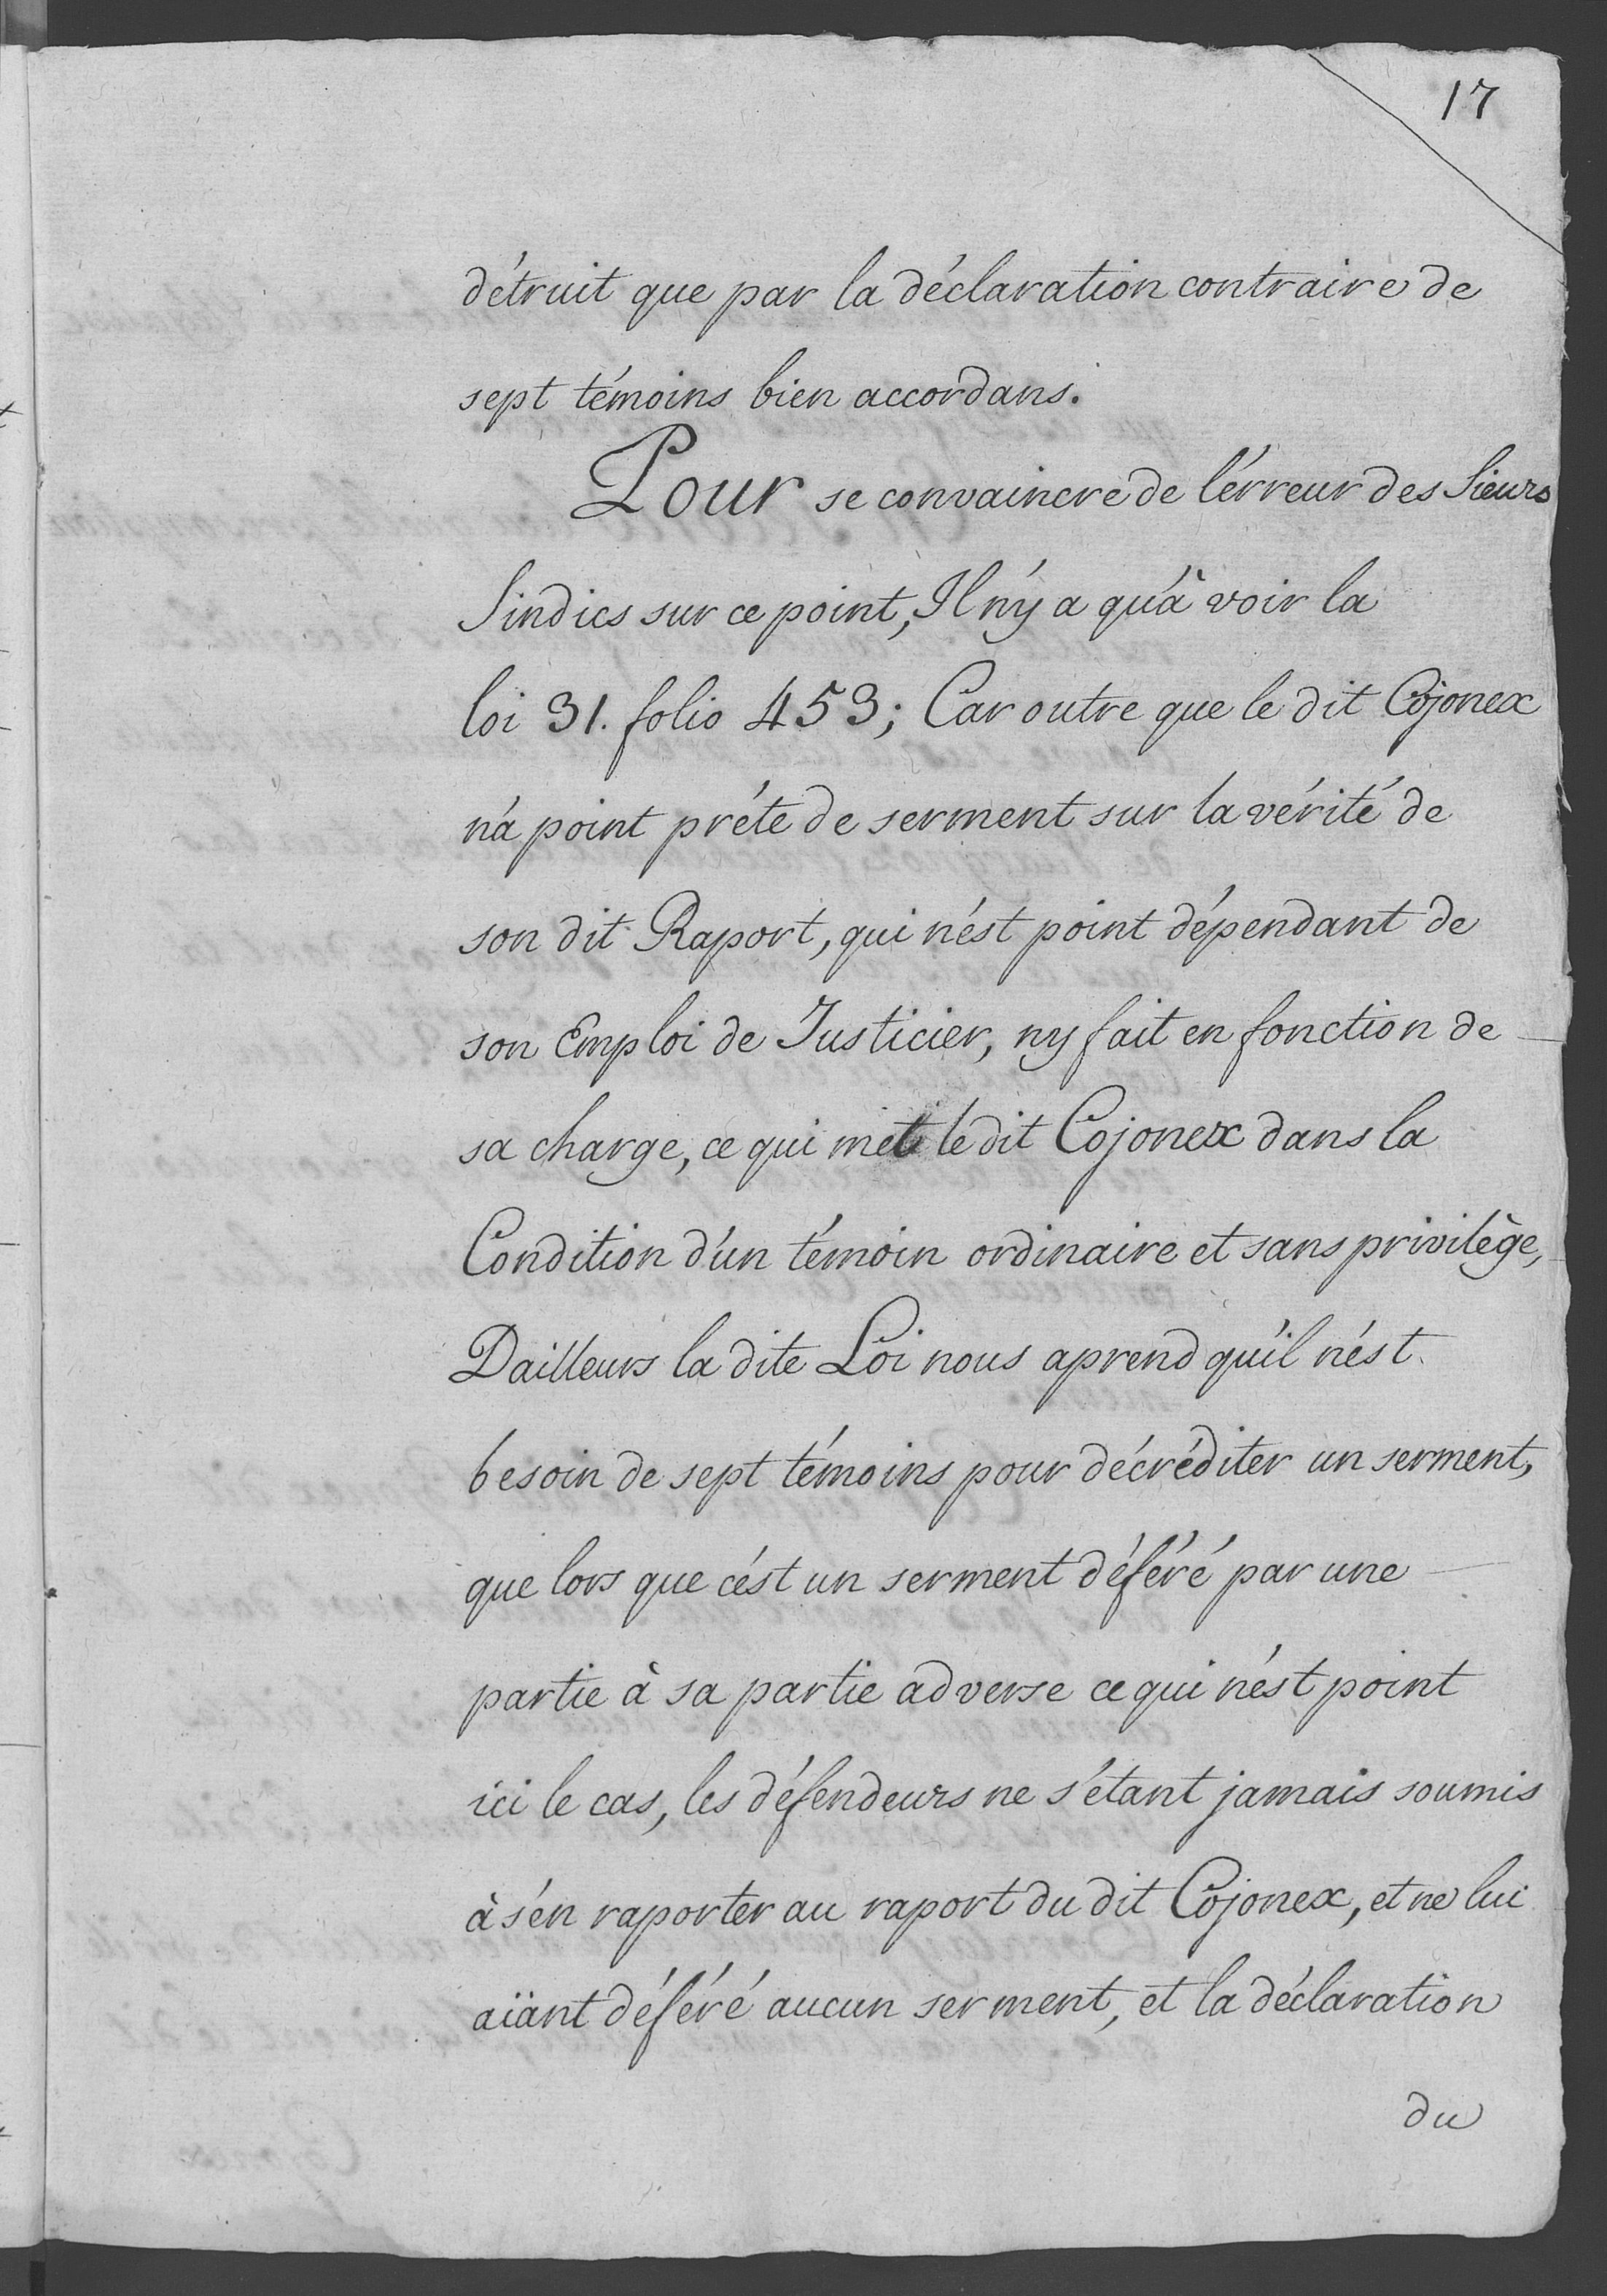 17
détruit que par la déclaration contraire de
sept témoins bien accordans.
Pour se convaincre de l'érreur des Sieurs
Sindics sur ce point, Il n'y a qu'à voir la
loi 31. folio 453; Car outre que le dit Cojonex
n'a point préte de serment sur la vérité de
son dit Raport, qui n'ést point dépendant de
son Emploi de Justicier, ny fait en fonction de
sa charge, ce qui met le dit Cojonex dans la
Condition d'un témoin ordinaire et sans privilège,
Dailleurs la dite Loi nous aprend qu'il n'ést
besoin de sept témoins pour décréditer un serment,
que lors que c'ést un serment déféré par une
partie à sa partie adverse ce qui n'ést point
ici le cas, les défendeurs ne s'étant jamais soumis
à s'én raporter au raport du dit Cojonex, et ne lui
aïant déféré aucun serment, et la déclaration
du